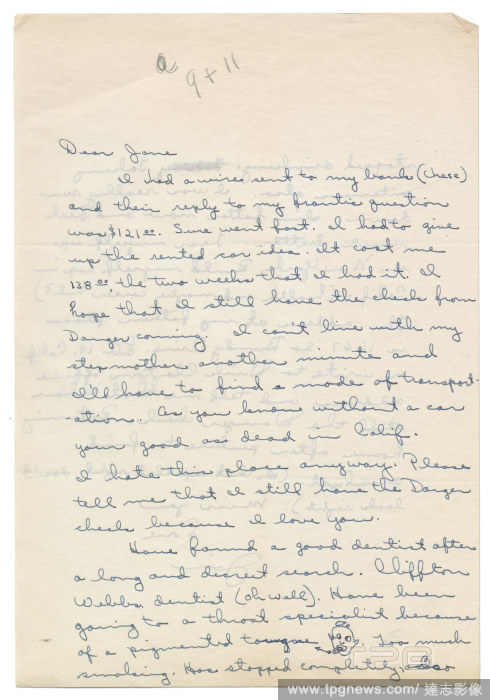 a
9 + 11
Dear Jane
I had a wire sent to my bank (Chase)
and their reply to my frantic question
was $121.00. Sure went fast. I had to give
up the rented car idea. It cost me
138.00 the two weeks that I had it. I
hope that I still have the check from
Danger coming. I can't live with my
step mother another minute and
I'll have to find a mode of transport-
-ation. As you know without a car
your good as dead in Calif.
I hate this place anyway. Please
tell me that I still have the Danger
check because I love you.
Have found a good dentist after
a long and discreet search. Cliffton
Webbs dentist (oh well). Have been
going to a throat specialist because
of a pigmented tongue. Too much
smoking. Has stopped completly, so
www.tpgnews.com/ 達志影像